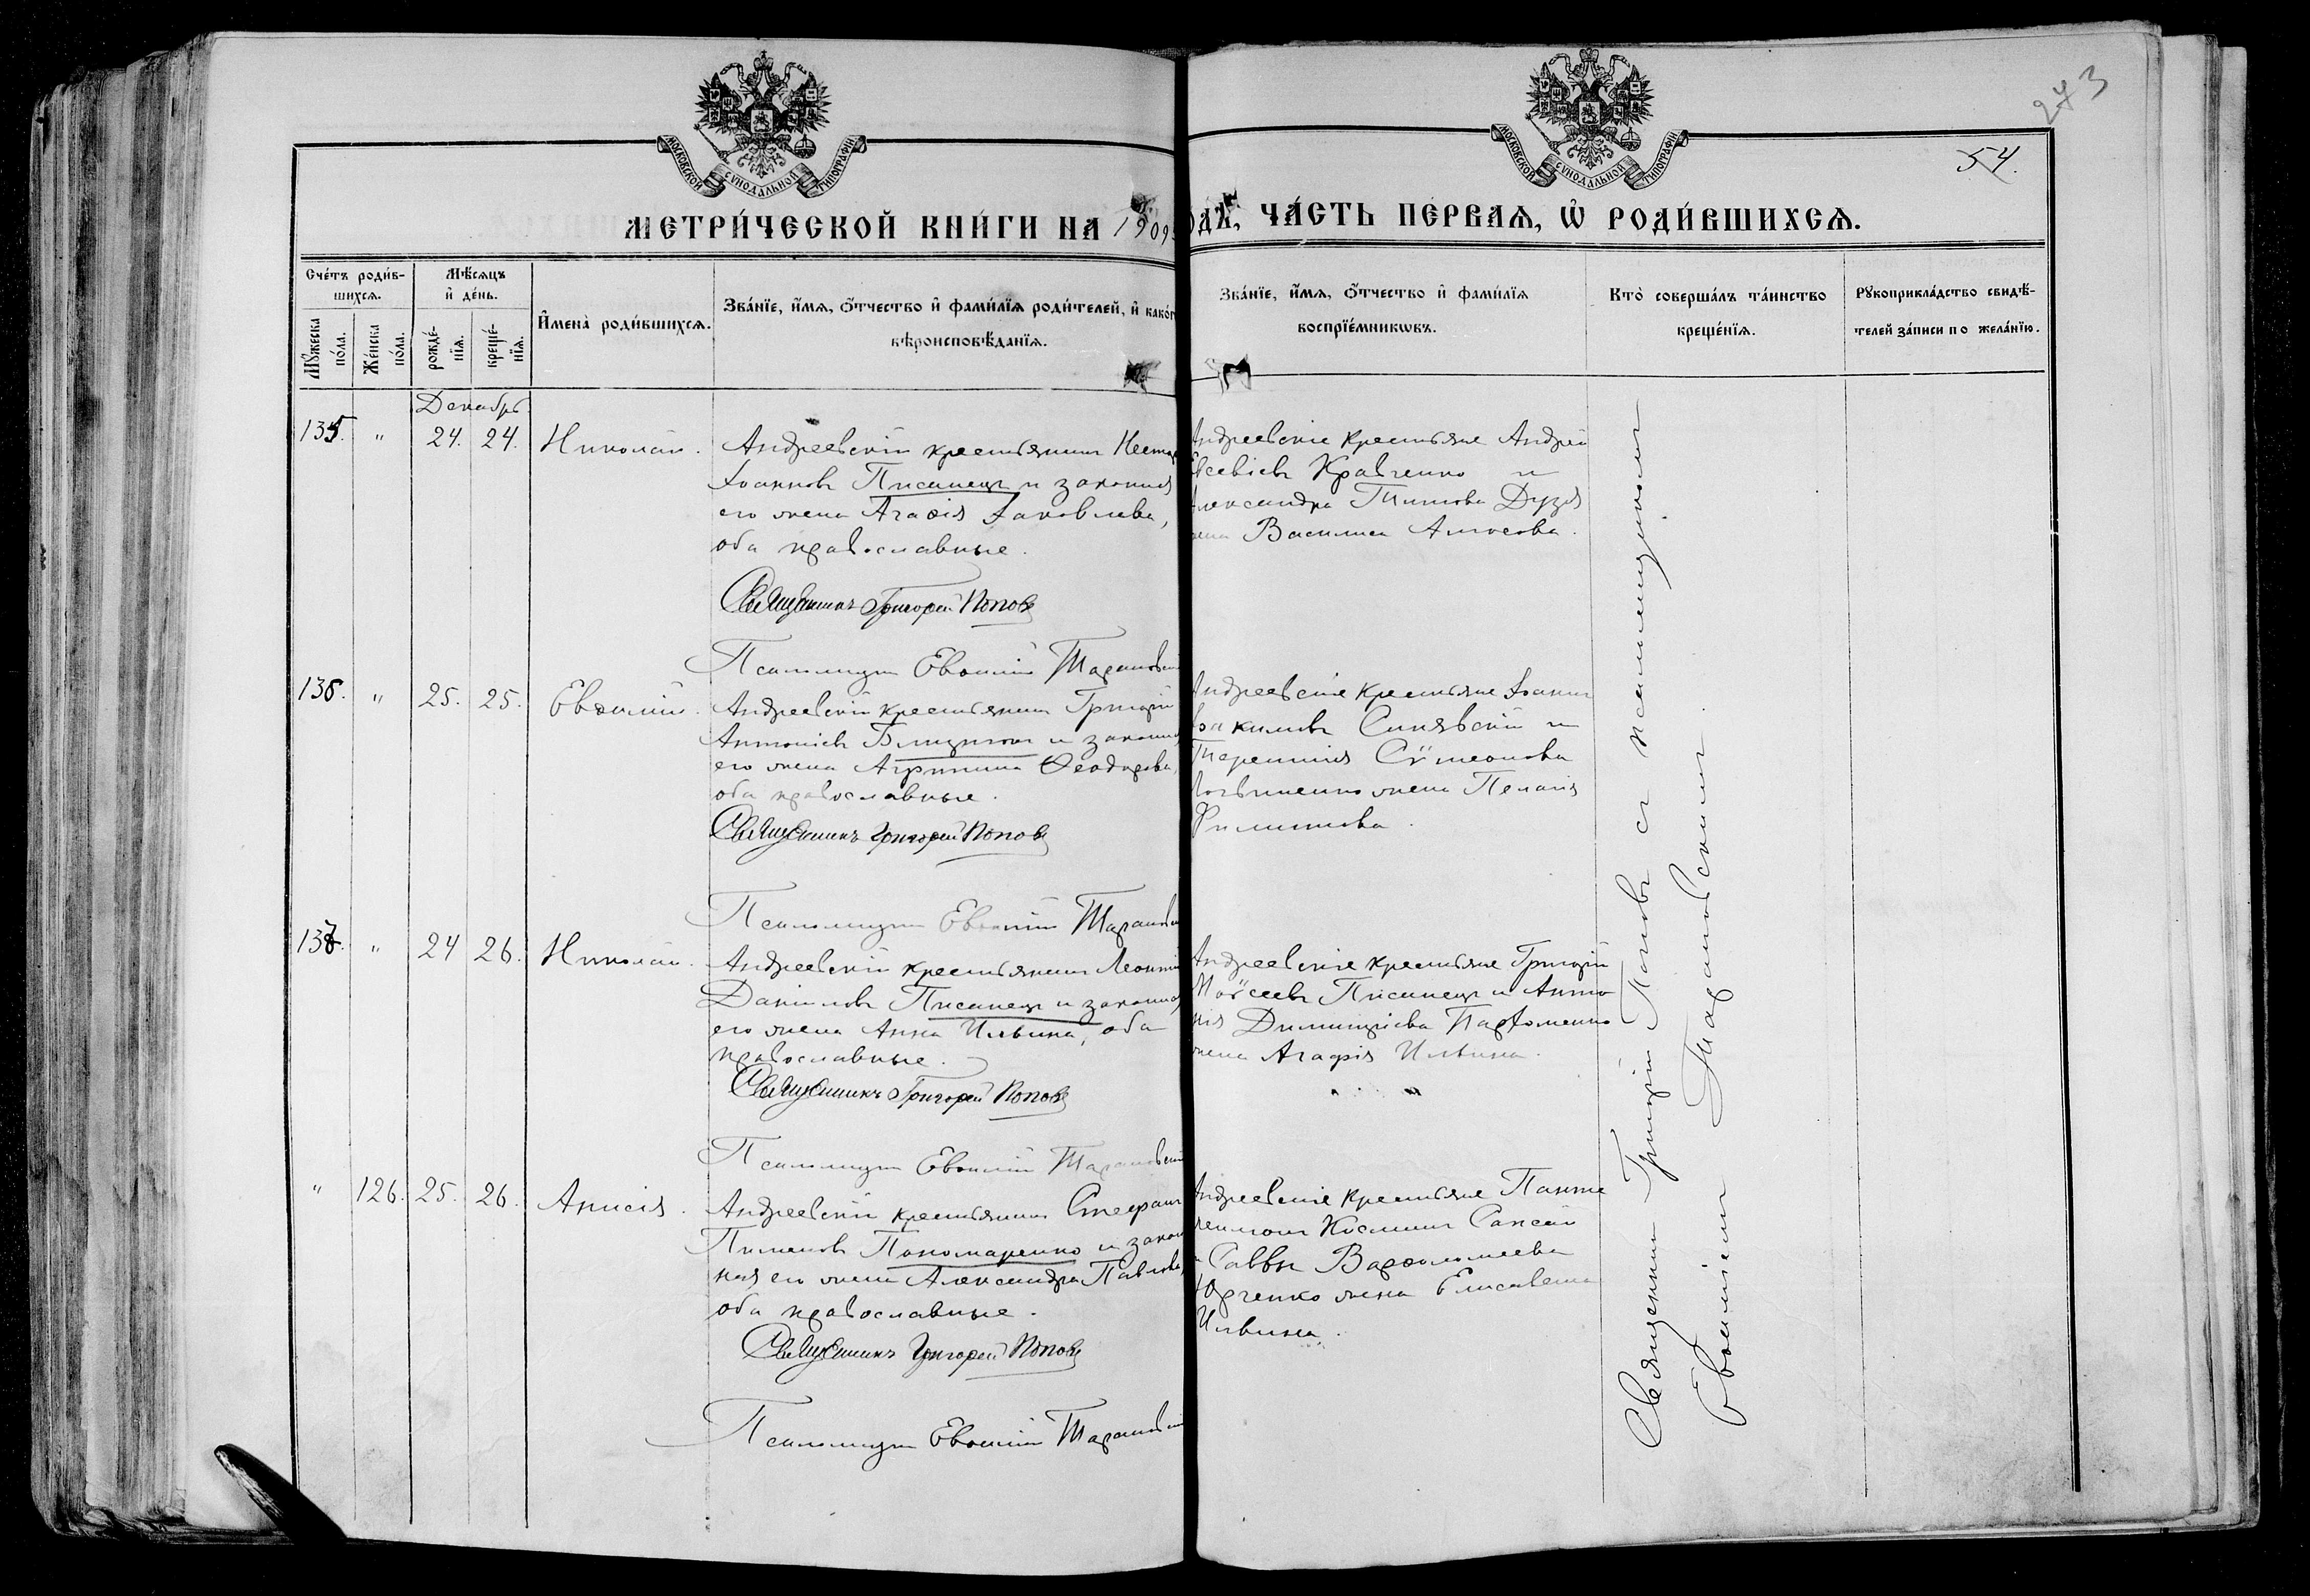 243
54.
МОСКОВСКОЙ СѴНОДАЛЬНОЙ ТИПОГРАФІИ
МОСКОВСКОЙ СѴНОДАЛЬНОЙ ТИПОГРАФІИ
МЕТРИ́ЧЕСКОЙ КНИ́ГИ НА 1909
ОДЪ, ЧА́СТЬ ПЕ́РВАѦ, Ѡ҆ РОДИ́ВШИХСѦ.
Сче́тъ роди́в-
шихсѧ.
Мꙋ́жеска
по́ла.
Же́нска
по́ла.
Мѣ́сѧцъ
и҆ де́нь.
рожде́-
нїѧ.
креще́-
нїѧ.
И҆мена̀ роди́вшихсѧ.
Зва́нїе, и҆́мѧ, ѻ҆́тчество и҆ фами́лїѧ роди́телей, и҆ како́г
вѣроисповѣ́данїѧ.
Зва́нїе, и҆́мѧ, ѻ҆́тчество и҆ фами́лїѧ
воспрїе́мникѡвъ.
Кто̀ соверша́лъ та́инство
креще́нїѧ.
Рꙋкоприкла́дство свидѣ́-
телей за́писи по жела́нїю.
Декабрь
135. " 24. 24. Николай.
Андреевскій крестьянинъ Несто
Іоанновъ Писанецъ и законная
его жена Агаѳія Іаковлева,
оба православные.
Священникъ Григорій Поповъ
Псаломщикъ Евѳимій Тарановскій
Андреевскіе крестьяне Андрей
Евсевіевъ Кравченко и
Александра Титова Дузя
жена Василиса Амосова.
136. " 25. 25. Евѳимій.
Андреевскій крестьянинъ Григорій
Антоніевъ Блищикъ и законная
его жена Агрипина Ѳеодорова,
оба православные.
Священникъ Григорій Поповъ
Псаломщикъ Евѳимій Таранов
Андреевскіе крестьяне Іоаннъ
Іоакимовъ Синявскій и
Терентія Сѵмеонова
жена Пелагія
Филиппова.
137. " 24 26. Николай.
Андреевскій крестьянинъ Леонтій
Даніиловъ Писанецъ и законная
его жена Анна Ильина, оба
православные.
Священникъ Григорій Поповъ
Псаломщикъ Евѳимій Тарановскій
Андреевскіе крестьяне Григорій
Моѵсеевъ Писанецъ и Анто
нія Димитріева Парѳоменко
жена Агафія Ильина.
" 126. 25. 26. Анисія.
Андреевскій крестьянинъ Стефанъ
Пименовъ Пономаренко и закон
ная его жена Александра Павлова,
оба православные.
Священникъ Григорій Поповъ
Псаломщикъ Евѳимій Тарановскій
Андреевскіе крестьяне Панте
леимонъ Косминъ Саксай
и Саввы Варѳоломеева
Юрченко жена Елисавета
Ильина.
Священникъ Григорій Поповъ съ псаломщикомъ
Евѳиміемъ Тарановскимъ.